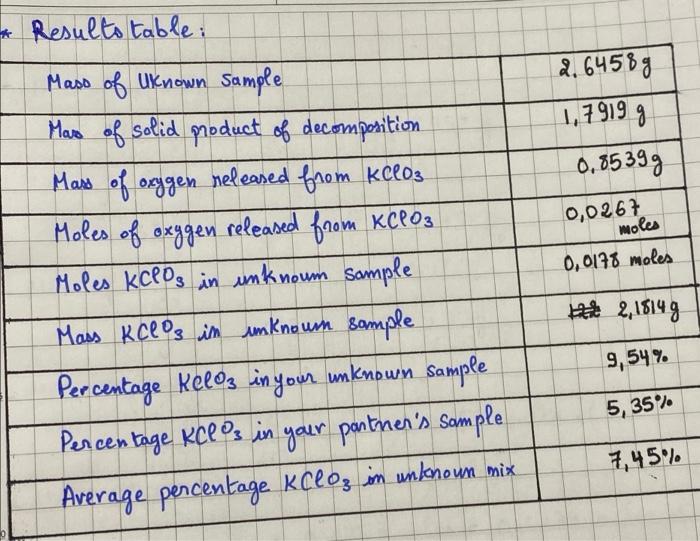 * Results table:
Mass of UKnown sample 2.6458g
Mass of solid product of decomposition 1,7919 g
Mass of oxygen released from KClO3 0,8539g
Moles of oxygen released from KClO3 0,0267 moles
Moles KClO3 in unknown sample 0,0178 moles
Mass KClO3 in unknown sample 2,1814g
Percentage KClO3 in your unknown sample 9,54%
Percentage KClO3 in your partner's sample 5,35%
Average percentage KClO3 in unknown mix 7,45%